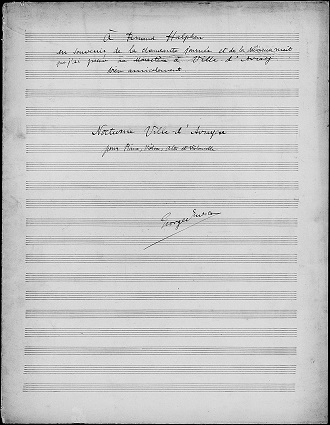 À Fernand Halphen
en souvenir de la charmante journée et de la
que j'ai passées à Ville d'Avray
bien amicalement
Nocturne Ville d'Avrayen
pour Piano, Violon, Alto et Violoncelle
Georges Enesco